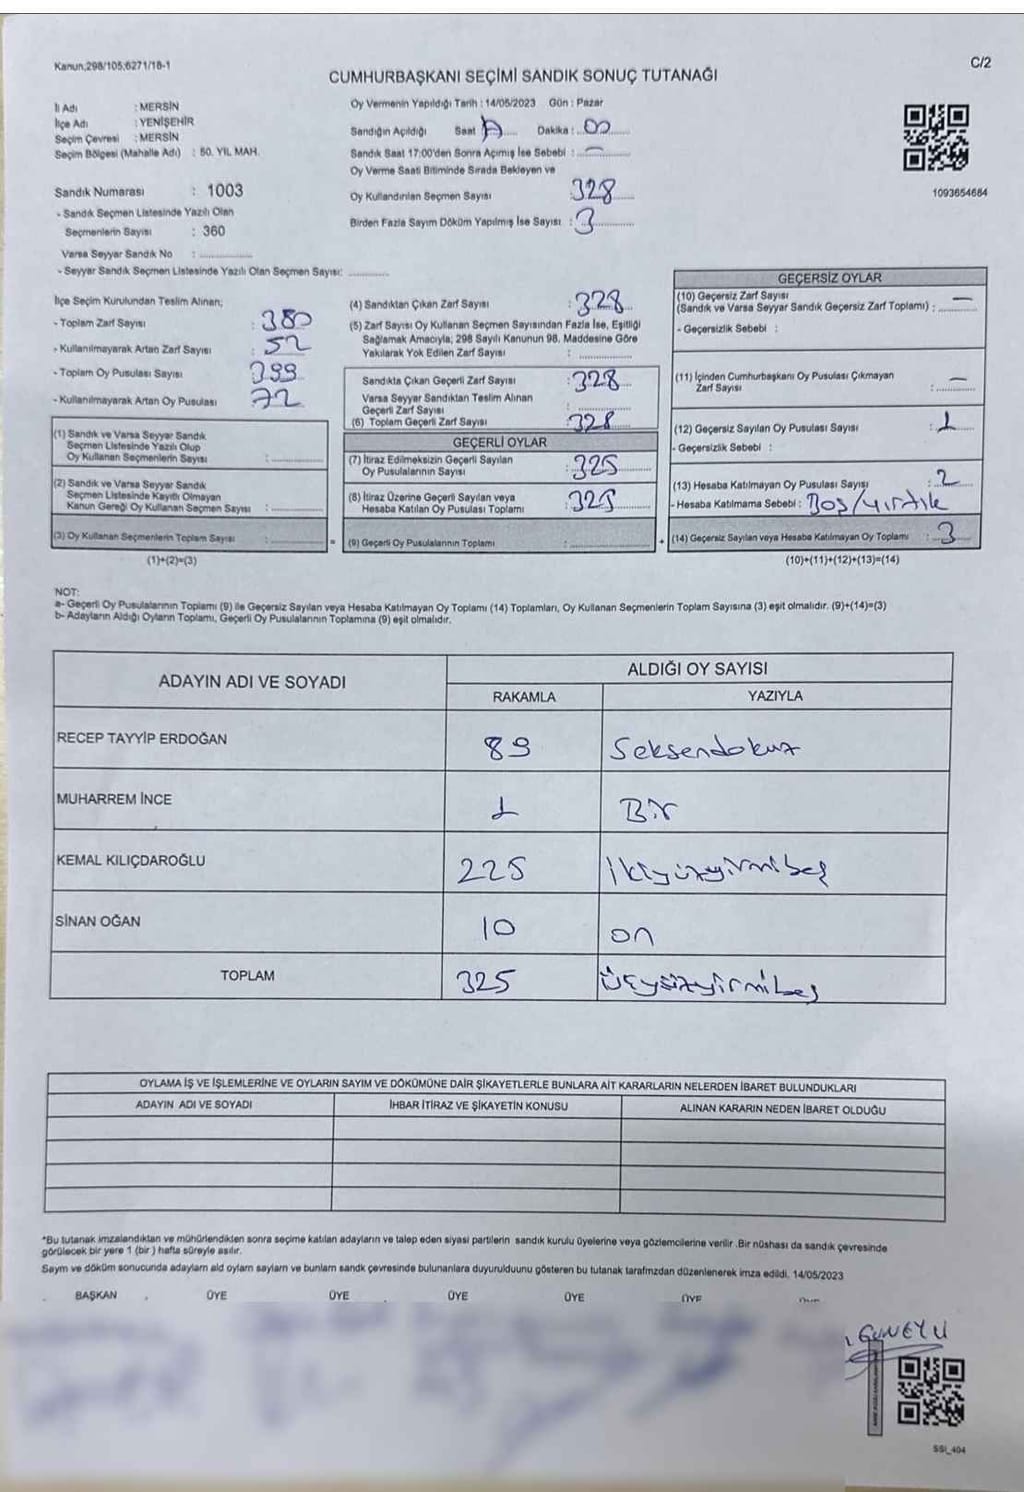 Kanun;298/105;6271/18-1
C/2
CUMHURBAŞKANI SEÇİMİ SANDIK SONUÇ TUTANAĞI
İl Adı : MERSİN
İlçe Adı : YENİŞEHİR
Seçim Çevresi : MERSİN
Seçim Bölgesi (Mahalle Adı) : 50. YIL MAH.
Sandık Numarası : 1003
- Sandık Seçmen Listesinde Yazılı Olan
Seçmenlerin Sayısı : 360
Varsa Seyyar Sandık No : ...............
- Seyyar Sandık Seçmen Listesinde Yazılı Olan Seçmen Sayısı: ............
Oy Vermenin Yapıldığı Tarih : 14/05/2023 Gün : Pazar
Sandığın Açıldığı Saat Dakika : 00
Sandık Saat 17:00'den Sonra Açımış İse Sebebi : —
Oy Verme Saati Bitiminde Sırada Bekleyen ve
Oy Kullandırılan Seçmen Sayısı : 328
Birden Fazla Sayım Döküm Yapılmış İse Sayısı : 3
1093654664
İlçe Seçim Kurulundan Teslim Alınan;
- Toplam Zarf Sayısı : 380
- Kullanılmayarak Artan Zarf Sayısı : 52
- Toplam Oy Pusulası Sayısı : 399
- Kullanılmayarak Artan Oy Pusulası : 72
(1) Sandık ve Varsa Seyyar Sandık
Seçmen Listesinde Yazılı Olup
Oy Kullanan Seçmenlerin Sayısı : ...............
(2) Sandık ve Varsa Seyyar Sandık
Seçmen Listesinde Kayıtlı Olmayan
Kanun Gereği Oy Kullanan Seçmen Sayısı : ...............
(3) Oy Kullanan Seçmenlerin Toplam Sayısı : ............... =
(1)+(2)=(3)
(4) Sandıktan Çıkan Zarf Sayısı : 328
(5) Zarf Sayısı Oy Kullanan Seçmen Sayısından Fazla İse, Eşitliği
Sağlamak Amacıyla; 298 Sayılı Kanunun 98. Maddesine Göre
Yakılarak Yok Edilen Zarf Sayısı : ...............
Sandıkta Çıkan Geçerli Zarf Sayısı : 328
Varsa Seyyar Sandıktan Teslim Alınan
Geçerli Zarf Sayısı : ...............
(6) Toplam Geçerli Zarf Sayısı : 328
GEÇERLİ OYLAR
(7) İtiraz Edilmeksizin Geçerli Sayılan
Oy Pusulalarının Sayısı : 325
(8) İtiraz Üzerine Geçerli Sayılan veya
Hesaba Katılan Oy Pusulası Toplamı : 325
(9) Geçerli Oy Pusulalarının Toplamı : ............... +
GEÇERSİZ OYLAR
(10) Geçersiz Zarf Sayısı
(Sandık ve Varsa Seyyar Sandık Geçersiz Zarf Toplamı) : —
- Geçersizlik Sebebi :
(11) İçinden Cumhurbaşkanı Oy Pusulası Çıkmayan
Zarf Sayısı : —
(12) Geçersiz Sayılan Oy Pusulası Sayısı : 1
- Geçersizlik Sebebi :
(13) Hesaba Katılmayan Oy Pusulası Sayısı : 2
- Hesaba Katılmama Sebebi : Boş/yırtık
(14) Geçersiz Sayılan veya Hesaba Katılmayan Oy Toplamı : 3
(10)+(11)+(12)+(13)=(14)
NOT:
a- Geçerli Oy Pusulalarının Toplamı (9) ile Geçersiz Sayılan veya Hesaba Katılmayan Oy Toplamı (14) Toplamları, Oy Kullanan Seçmenlerin Toplam Sayısına (3) eşit olmalıdır. (9)+(14)=(3)
b- Adayların Aldığı Oyların Toplamı, Geçerli Oy Pusulalarının Toplamına (9) eşit olmalıdır.
ADAYIN ADI VE SOYADI ALDIĞI OY SAYISI
RAKAMLA YAZIYLA
RECEP TAYYİP ERDOĞAN 89 Seksendokuz
MUHARREM İNCE 1 Bir
KEMAL KILIÇDAROĞLU 225 İkiyüzyirmibeş
SİNAN OĞAN 10 on
TOPLAM 325 üçyüzyirmibeş
OYLAMA İŞ VE İŞLEMLERİNE VE OYLARIN SAYIM VE DÖKÜMÜNE DAİR ŞİKAYETLERLE BUNLARA AİT KARARLARIN NELERDEN İBARET BULUNDUKLARI
ADAYIN ADI VE SOYADI İHBAR İTİRAZ VE ŞİKAYETİN KONUSU ALINAN KARARIN NEDEN İBARET OLDUĞU
*Bu tutanak imzalandıktan ve mühürlendikten sonra seçime katılan adayların ve talep eden siyasi partilerin sandık kurulu üyelerine veya gözlemcilerine verilir .Bir nüshası da sandık çevresinde
görülecek bir yere 1 (bir ) hafta süreyle asılır.
Saym ve döküm sonucunda adaylarn ald oylarn saylarn ve bunlarn sandk çevresinde bulunanlara duyurulduunu gösteren bu tutanak tarafmzdan düzenlenerek imza edildi. 14/05/2023
BAŞKAN ÜYE ÜYE ÜYE ÜYE ÜYE
GÜNEYLİ
SSI_404